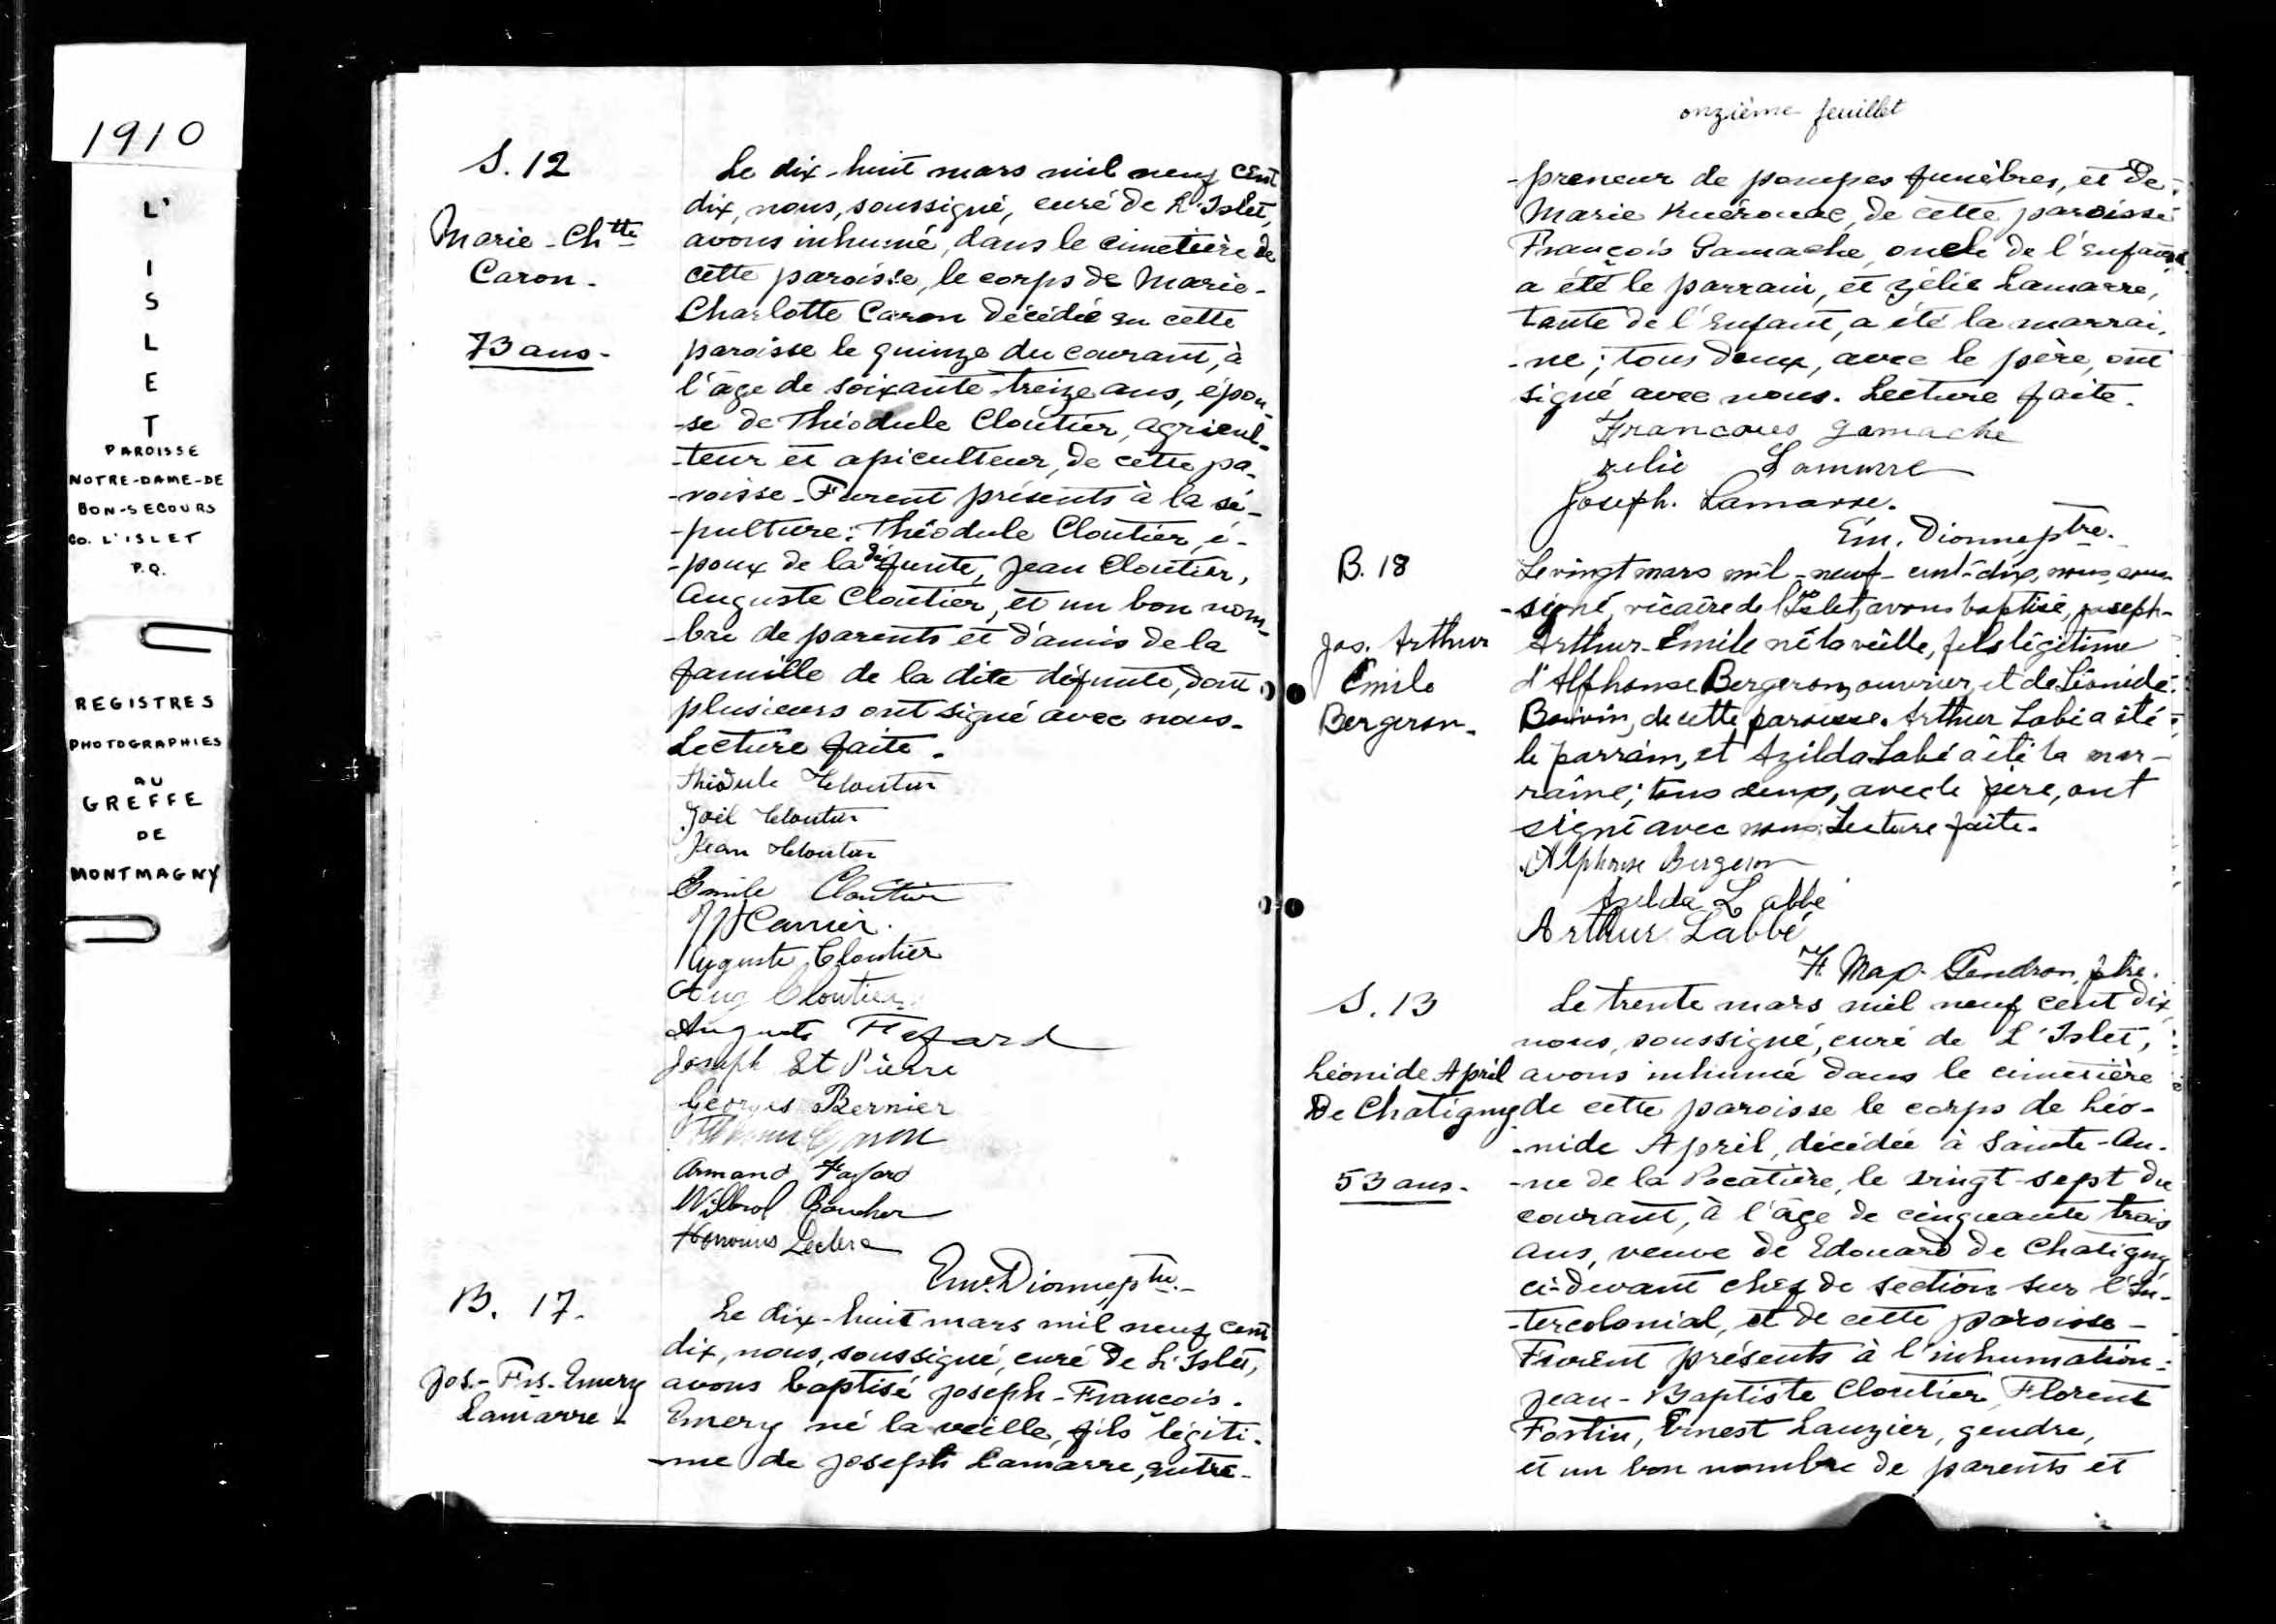 1910
L'
I
S
L
E
T
PAROISSE
NOTRE-DAME-DE
BON-SECOURS
CO. L'ISLET
P.Q.
REGISTRES
PHOTOGRAPHIES
AU
GREFFE
DE
MONTMAGNY
S. 12
Marie-Chtte
Caron.
73 ans.
Le dix-huit mars mil neuf cent
dix, nous, soussigné, curé de L'Islet,
avons inhumé, dans le cimetière de
cette paroisse, le corps de Marie-
Charlotte Caron décédée en cette
paroisse le quinze du courant, à
l'âge de soixante treize ans, épou-
-se de Théodule Cloutier, agricul-
-teur et apiculteur, de cette pa-
-roisse. Furent présents à la sé-
-pulture: Théodule Cloutier, é-
-poux de la défunte, Jean Cloutier,
Auguste Cloutier, et un bon nom-
-bre de parents et d'amis de la
famille de la dite défunte, dont
plusieurs ont signé avec nous.
Lecture faite.
Théodule Cloutier
Joël Cloutier
Jean Cloutier
Emile Cloutier
Carrier.
Auguste Cloutier
Aug Cloutier
Auguste Fafard
Joseph St Pierre
Georges Bernier
Caron
Armand Fafard
Wilbrod Boucher
Leclerc
Em. Dionne, ptre.
B. 17.
Jos.-Frs.-Emery
Lamarre
Le dix-huit mars mil neuf cent
dix, nous, soussigné, curé de L'Islet,
avons baptisé Joseph-François-
Emery né la veille, fils légiti-
-me de Joseph Lamarre, entre-
onzième feuillet
-preneur de pompes funèbres, et de
Marie Kuérouac, de cette paroisse.
François Gamache, oncle de l'enfant,
a été le parrain, et Zélie Lamarre,
tante de l'enfant, a été la marrai-
-ne; tous deux, avec le père, ont
signé avec nous. Lecture faite.
Francois Gamache
zelie Lamarre
Joseph. Lamarre.
Em. Dionne, ptre.
B. 18
Jos. Arthur
Emile
Bergeron.
Le vingt mars mil-neuf-cent-dix, nous, sous-
-signé, vicaire de l'Islet, avons baptisé, Joseph-
Arthur-Emile né la veille, fils légitime
d'Alphonse Bergeron, ouvrier, et de Léonide
Boivin, de cette paroisse. Arthur Labé a été
le parrain, et Azilda Labé a été la mar-
raine; tous deux, avec le père, ont
signé avec nous. Lecture faite.
Alphonse Bergeron
Azilda Labbé
Arthur Labbé
F. Max. Gendron, ptre.
S. 13
Léonide April
De Chatigny
53 ans.
Le trente mars mil neuf cent dix,
nous, soussigné, curé de L'Islet,
avons inhumé dans le cimetière
de cette paroisse le corps de Léo-
-nide April, décédée à Sainte-An-
-ne de la Pocatière, le vingt-sept du
courant, à l'âge de cinquante trois
ans, veuve de Edouard de Chatigny
ci-devant chef de section sur l'In-
-tercolonial, et de cette paroisse-
Furent présents à l'inhumation:
Jean-Baptiste Cloutier, Florent
Fortin, Ernest Lauzier, gendre,
et un bon nombre de parents et